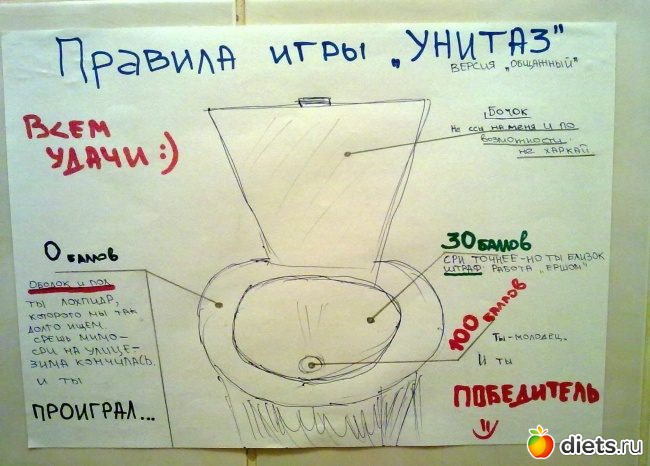 Правила игры „УНИТАЗ"
ВЕРСИЯ „ОБЩАЖНЫЙ"
ВСЕМ
УДАЧИ :)
БОЧОК
Не ССЫ НА МЕНЯ И ПО
ВОЗМОТНОСТИ
НЕ ХАРКАЙ
0 БАЛЛОВ
ОБОДОК И ПОЛ
ТЫ ЛОХПИДР,
КОТОРОГО МЫ ТАК
ДОЛГО ИЩЕМ.
СРЕШЬ МИМО-
СРИ НА УЛИЦЕ-
ЗИМА КОНЧИЛАСЬ.
И ТЫ
ПРОИГРАЛ...
30 БАЛЛОВ
СРИ ТОЧНЕЕ-НО ТЫ БЛИЗОК
ШТРАФ: РАБОТА „ЕРШОМ"
100 БАЛЛОВ
ТЫ-МОЛОДЕЦ.
И ТЫ
ПОБЕДИТЕЛЬ
diets.ru